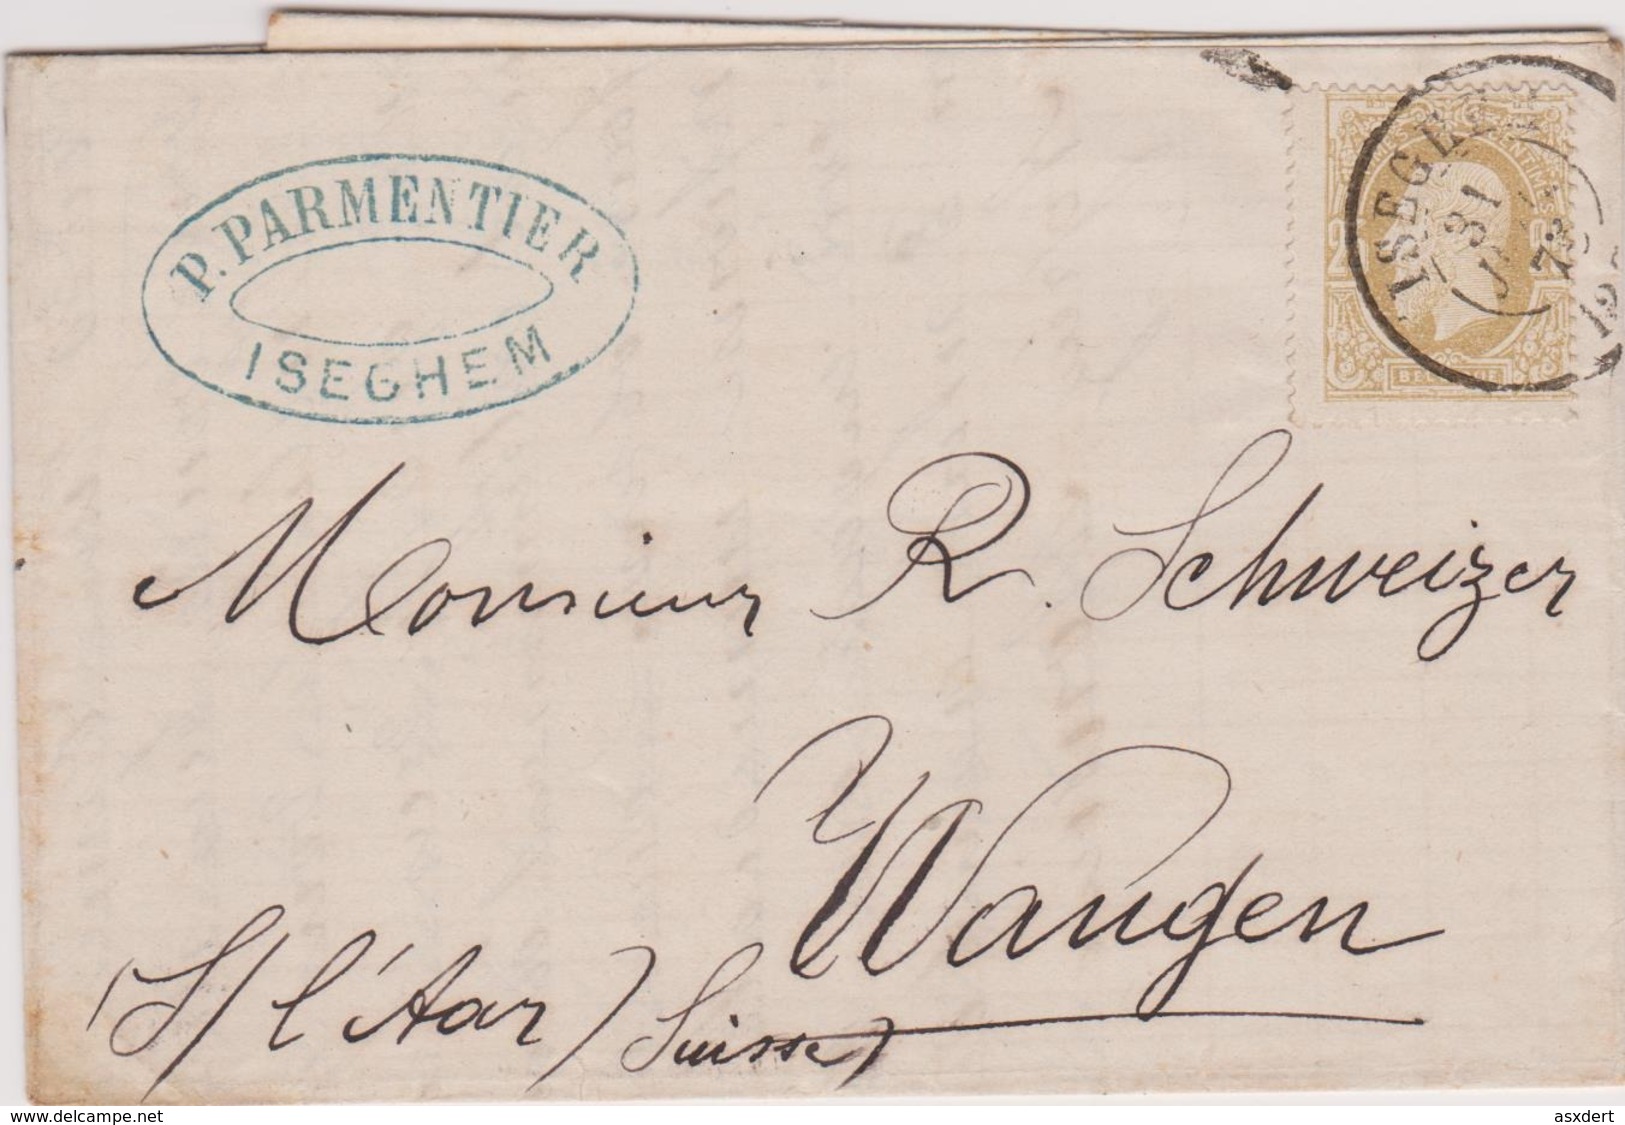 P. PARMENTIER
ISEGHEM
ISEGHEM
31
73
12
BELGIQUE
Monsieur R. Schweizer
Wangen
(S/ l'Aar) (Suisse)
delcampe.net
asxdert